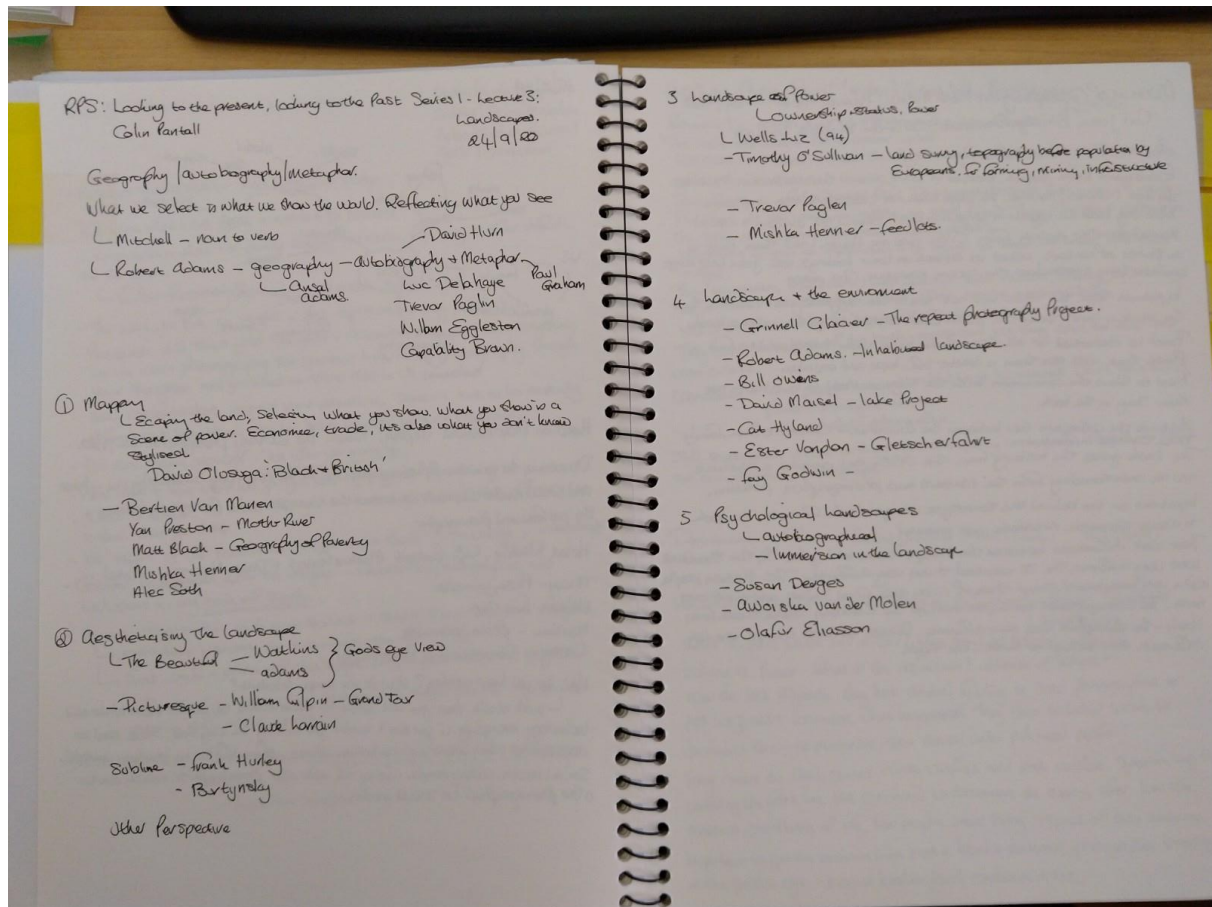 RPS: Looking to the present, looking to the Past Series 1 - Lecture 3:
Colin Pantall
Landscapes.
24/9/20
Geography / autobiography / metaphor.
What we select is what we show the world. Reflecting what you see
Mitchell - noun to verb
David Hurn
Robert Adams - geography - autobiography + Metaphor
Ansal adams.
Paul Graham
Luc Delahaye
Trevor Paglin
Willam Eggleston
Capability Brown.
① Mapping
the land, Selecting what you show. What you show is a
Scene of power. Economice, trade, it's also what you don't know
Stylised
David Olosuga: 'Black + British'
- Bertien Van Manen
Yan Preston - Mother River
Matt Black - Geography of Poverty
Mishka Henner
Alec Soth
② Aestheticising the landscape
The Beautiful - Watkins } Gods eye view
- adams
- Picturesque - William Gilpin - Grand Tour
- Claude Lorrain
Sublime - Frank Hurley
- Burtynsky
Other Perspective
3 Landscape Power
Ownership, status, Power
Wells. Liz (94)
- Timothy O'Sullivan - land survey, topography before population by
Europeans. for farming, mining, infrastructure
- Trevor Paglen
- Mishka Henner - feedlots.
4 Landscape + the environment
- Grinnell Glacier - The repeat photography Project.
- Robert Adams. - Inhabited landscape.
- Bill Owens
- David Maisel - lake Project
- Cat Hyland
- Ester Vonplon - Gletscherfahrt
- Fay Godwin -
5 Psychological Landscapes
autobiographical
- Immersion in the landscape
- Susan Derges
- Awoiska van der Molen
- Olafur Eliasson